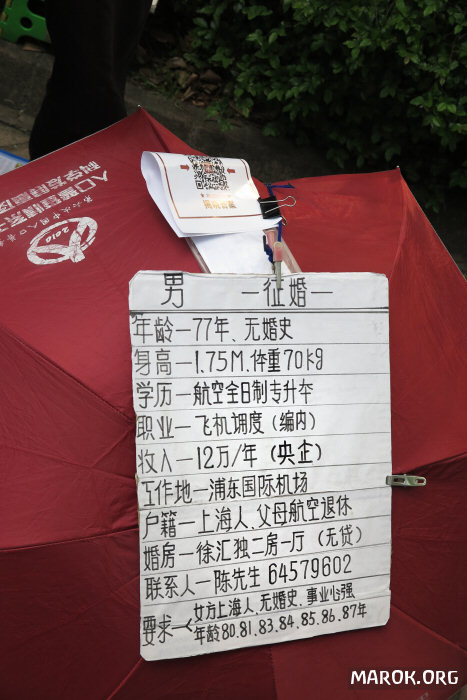 人口普查
2010
男 一征婚一
年龄一77年、无婚史
身高一1.75M、体重70kg
学历一航空全日制专升本
职业一飞机调度（编内）
收入一12万/年（央企）
工作地一浦东国际机场
户籍一上海人、父母航空退休
婚房一徐汇独二房一厅（无贷）
联系人一陈先生 64579602
要求一< 女方上海人、无婚史、事业心强
年龄80.81.83.84.85.86.87年
MAROK.ORG